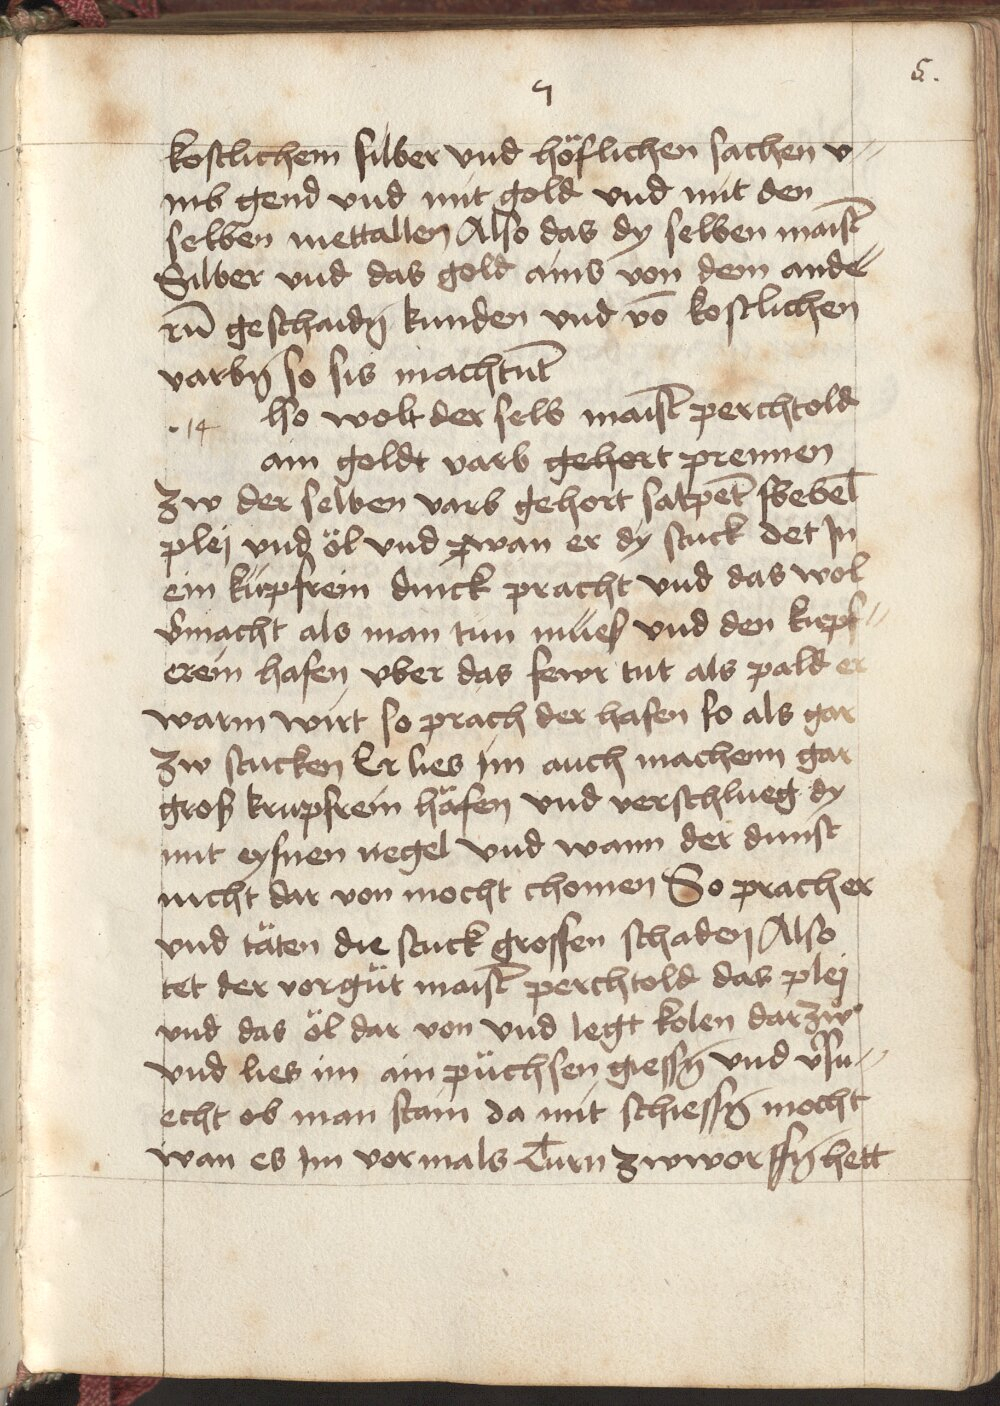 5.
9
kostlichem silber vnd höflichen sachen v=
mb gend vnd mit gold vnd mit den
selben mettallen Also das dy selben maist̄
Silber vnd das gold ains von dem ande=
rn̄ geschaidn̄ kunden vnd vō kostlichen
varbn̄ so sis machtn̄t
.14 lso wolt der selb maist̄ perchtold
ain goldt varb gehort prennen
zw der selben varb gehort salpet̄ swebel
plej vnd öl vnd wan er dy stuck det Jn
ein kupfrein dinck pracht vnd das wol
v̄macht als man tun mües vnd den kupf=
erein hafen vber das fewr tut als pald er
warm wirt so prach der hafen so als gar
zw stucken Er lies im auch machenn gar
gros krupfrein häfen vnd verschlueg dy
mit eysnen negel vnd wann der dunst
nicht dar von mocht chomen So prach er
vnd täten die stuck grossen schaden Also
tet der vorgüt maist̄ perchtold das plej
vnd das öl dar von vnd legt kolen darzw
vnd lies im ain püchsen giessn̄ vnd v̄su=
echt ob man stain da mit schiessn̄ mocht
wan es im vormals Turn zwworffn̄ hett